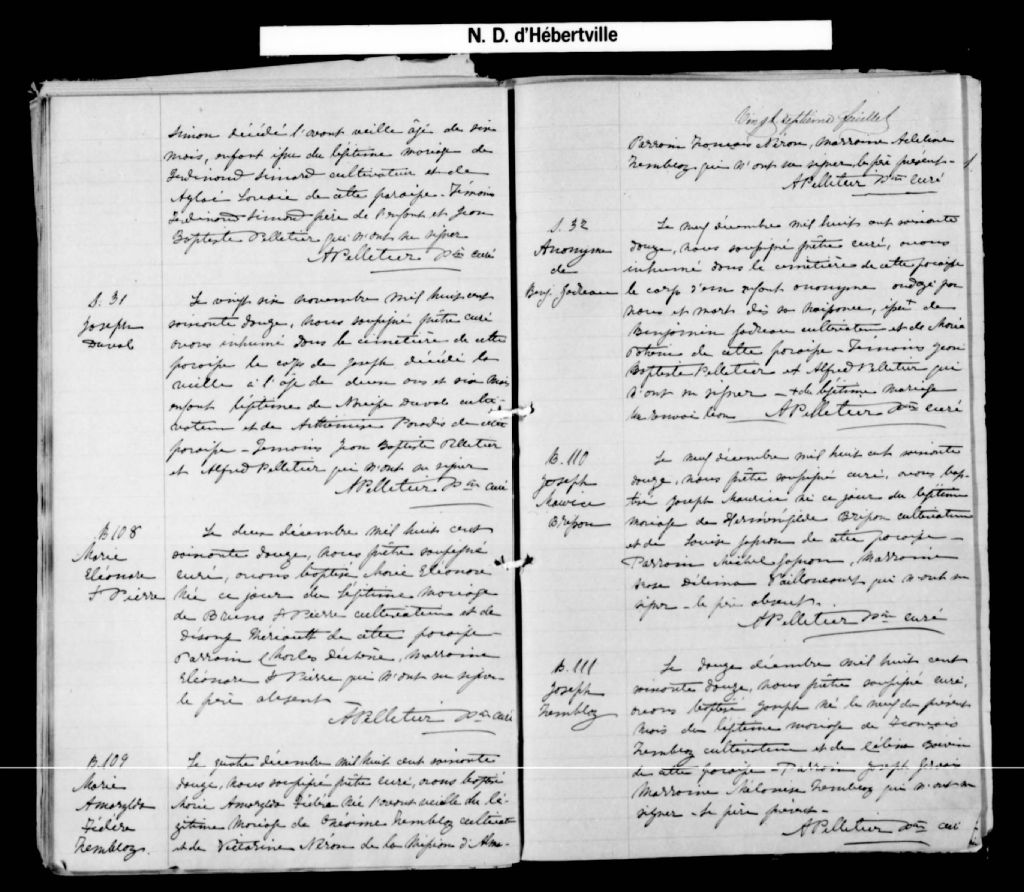 N. D. d'Hébertville
Simon décédé l'avant veille âgé de six
mois, enfant issu du légitime mariage de
Ferdinand Simard cultivateur et de
Aglaé de cette paroisse - Témoins
Ferdinand Simard père de l'enfant et Jean
Baptiste Pelletier qui n'ont su signer
APelletier Ptre curé
S. 31
Joseph
Duval
Le vingt six novembre mil huit cent
soixante douze, nous soussigné prêtre curé
avons inhumé dans le cimetière de cette
paroisse le corps de Joseph décédé la
veille à l'âge de deux ans et six mois
enfant légitime de Narcisse Duval culti-
vateur et de Arthémise Paradis de cette
paroisse - Temoins Jean Baptiste Pelletier
et Alfred Pelletier qui n'ont su signer
APelletier Ptre curé
B 108
Marie
Eléonore
St Pierre
Le deux décembre mil huit cent
soixante douze, nous prêtre soussigné
curé, avons baptisé Marie Eléonore
née ce jour du légitime mariage
de Bruno St Pierre cultivateur et de
Thériault de cette paroisse -
Parrain Charles Dechêne, Marraine
Eléonore St Pierre qui n'ont su signer
le père absent
APelletier Ptre curé
B. 109
Marie
Amarylda
Tremblay.
Le quatre décembre mil huit cent soixante
douze, nous soussigné prêtre curé, avons baptisé
Marie Amarylda née l'avant veille du lé-
gitime mariage de Onésime Tremblay cultivateur
et de Victorine Néron de la Mission d'Alma-
Vingt septième feuillet
Parrain François Néron, Marraine Adeline
Tremblay qui n'ont su signer, le père présent -
APelletier Ptre curé
S. 32
Anonyme
de
Benj. Gadreau
Le neuf décembre mil huit cent soixante
douze, nous soussigné prêtre curé, avons
inhumé dans le cimetière de cette paroisse
le corps d'un enfant anonyme ondoyé par
nous et mort dès sa naissance, issu + de
Benjamin Gadreau cultivateur et de Marie
de cette paroisse - Témoins Jean
Baptiste Pelletier et Alfred Pelletier qui
n'ont su signer - + du légitime mariage
un renvoi bon APelletier Ptre curé
B. 110
Joseph
Maurice
Brisson
Le neuf décembre mil huit cent soixante
douze, nous prêtre soussigné curé, avons bap-
tisé Joseph Maurice né ce jour du légitime
mariage de Herménégilde Brisson cultivateur
et de Louise Gagnon de cette paroisse -
Parrain Michel Gagnon, Marraine
Rose Délima Tailloncourt qui n'ont su
signer - le père absent.
APelletier Ptre curé
B. 111
Joseph
Tremblay
Le douze décembre mil huit cent
soixante douze, nous prêtre soussigné curé,
avons baptisé Joseph né le neuf du présent
mois du légitime mariage de François
Tremblay cultivateur et de Célina Boivin
de cette paroisse - Parrain Joseph
Marraine Philomise Tremblay qui n'ont su
signer - le père présent -
APelletier Ptre curé